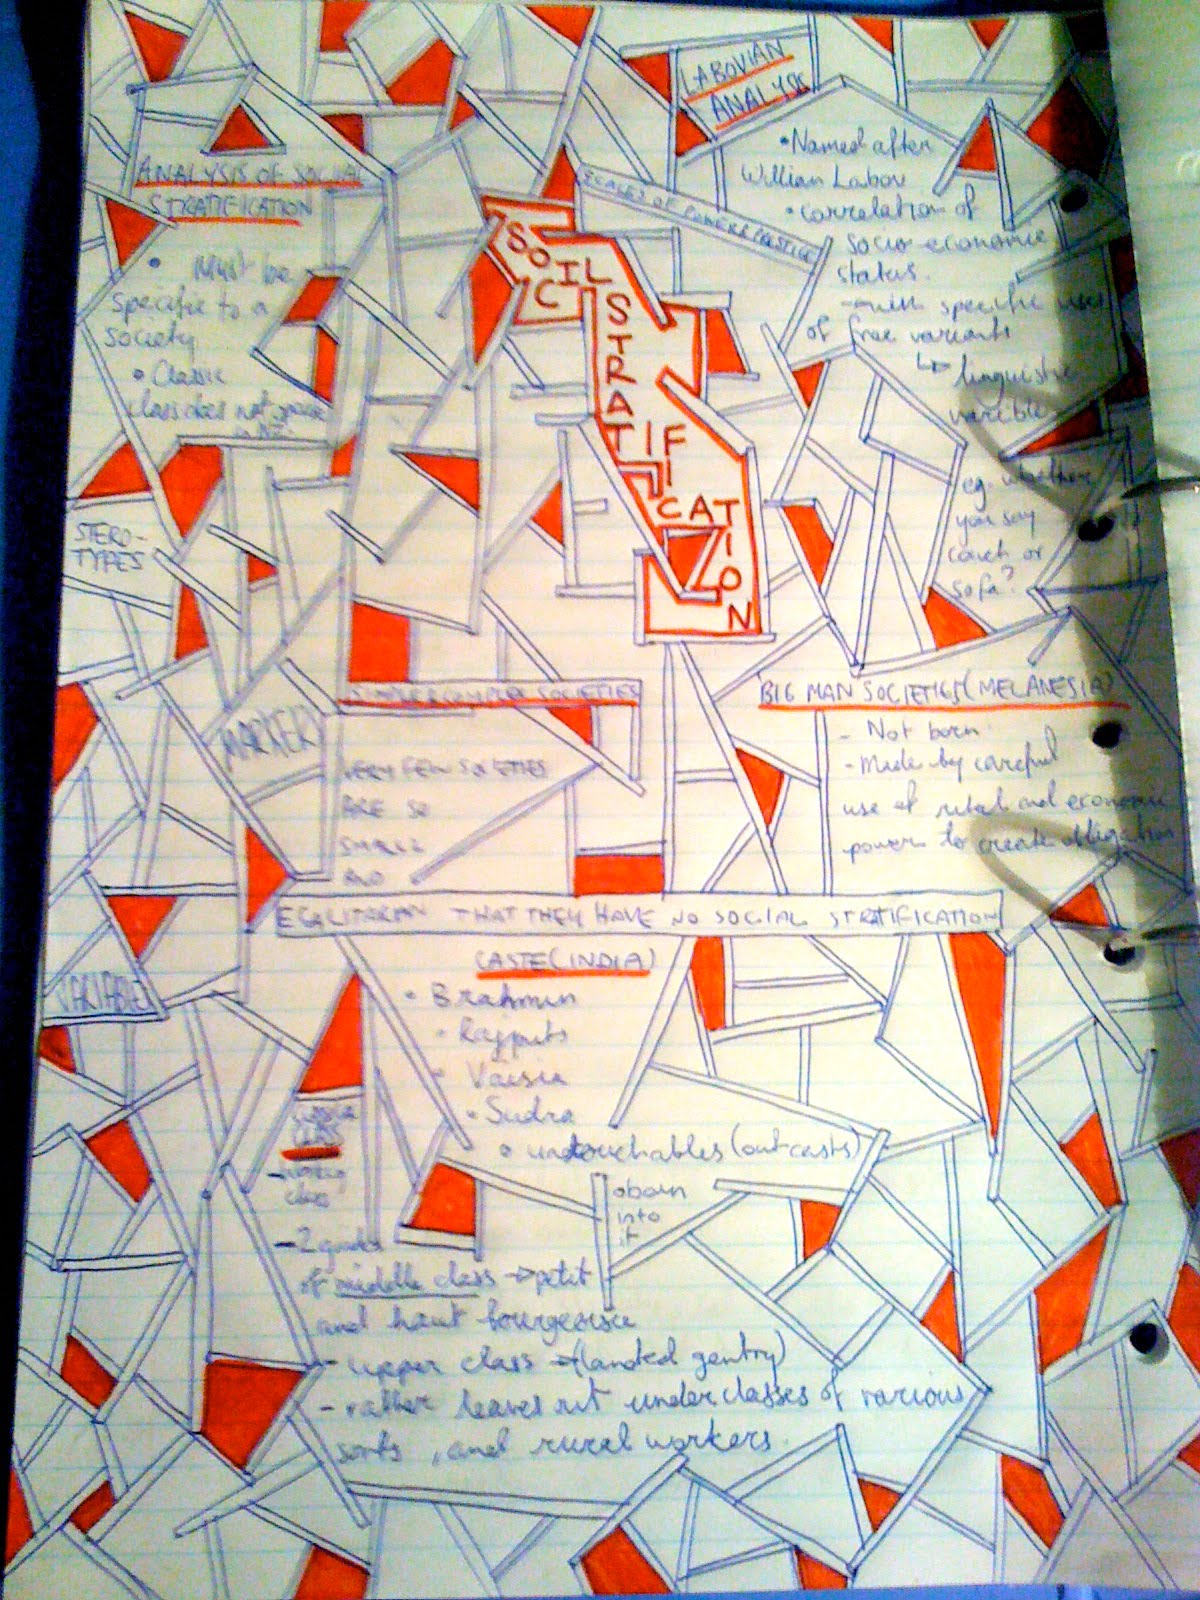 LABOVIAN
ANALYSIS
• Named after
William Labov
• correlation of
socio economic
status.
- with specific uses
of free variants
↳ linguistic
variable
eg. whether
you say
couch or
sofa?
ANALYSIS OF SOCIAL
STRATIFICATION
• Must be
specific to a
society
• Classic
class does not
SCALES OF POWER & PRESTIGE
SOCIL
STRATIFICATION
STERO-
TYPES
MARKER
VARIABLE
SIMPLE & COMPLEX SOCIETIES
VERY FEW SOCIETIES
ARE SO
SMALL
AND
EGALITARIAN THAT THEY HAVE NO SOCIAL STRATIFICATION
BIG MAN SOCIETIES (MELANESIA)
- Not born
- Made by careful
use of ritual and economic
power to create obligation
CASTE (INDIA)
• Brahmin
• Rajputs
• Vaisia
• Sudra
• untouchables (outcasts)
born
into
it
CLASS
- working
class
- 2 grades
of middle class → petit
and haut bourgeoisie
- upper class → (landed gentry)
- rather leaves out underclasses of various
sorts, and rural workers.